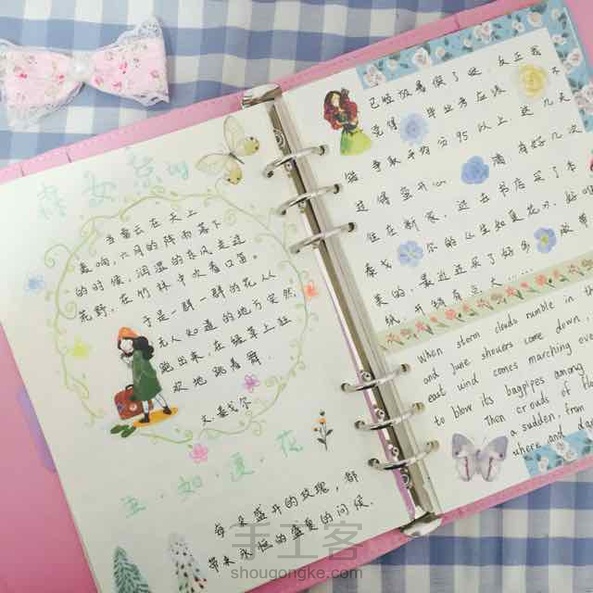 当雷云在天上
轰响,六月的阵雨落下
的时候,润湿的东风走过
荒野,在竹林中吹着口笛。
于是一群一群的花从
无人知道的地方突然
跑出来,在绿草上狂
欢地跳着舞。
文:泰戈尔
生·如·夏·花
每朵盛开的玫瑰,都
带来永恒的盛夏的问候。
已经放暑假了呀 反正我
觉得 毕业考应该 不
错 争取平均分95以上.这几天
过得 清 有好几次
住在新家.还在书店买了本
泰戈尔的《生如夏花》.好
美的.最近还买了好多 胶带
纸.开销有点大……
When storm clouds rumble in th
and June showers come down,
east wind comes marching over
to blow its bagpipes among
Then crowds of flo
a sudden, from
where and dan
手工客
shougongke.com